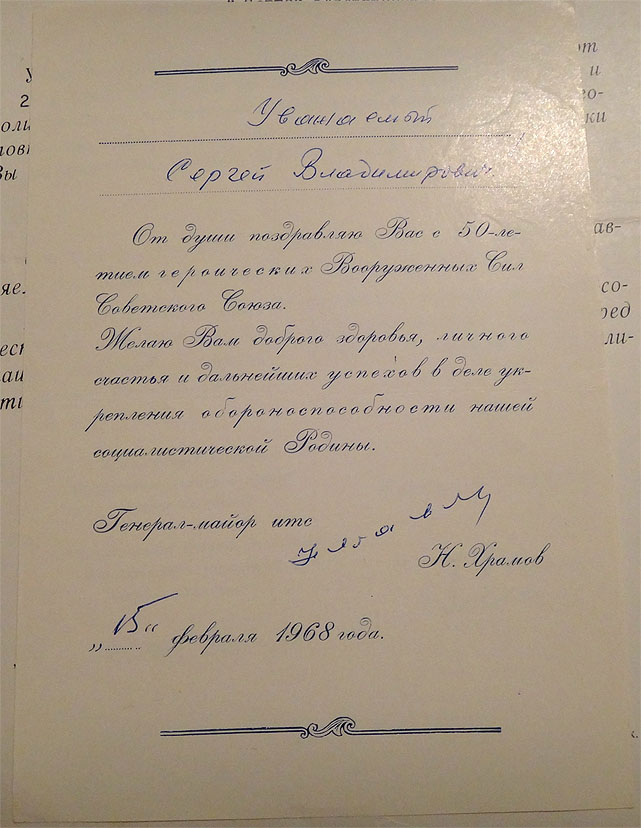 Уважаемый
Сергей Владимирович
От души поздравляю Вас с 50-ле-
тием героических Вооруженных Сил
Советского Союза.
Желаю Вам доброго здоровья, личного
счастья и дальнейших успехов в деле ук-
репления обороноспособности нашей
социалистической Родины.
Генерал-майор итс
Н. Храмов
„15“ февраля 1968 года.